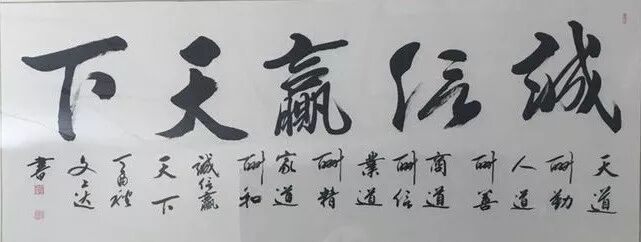 誠信贏天下
天道
酬勤
人道
酬善
商道
酬信
業道
酬精
家道
酬和
誠信贏
天下
丁酉
書